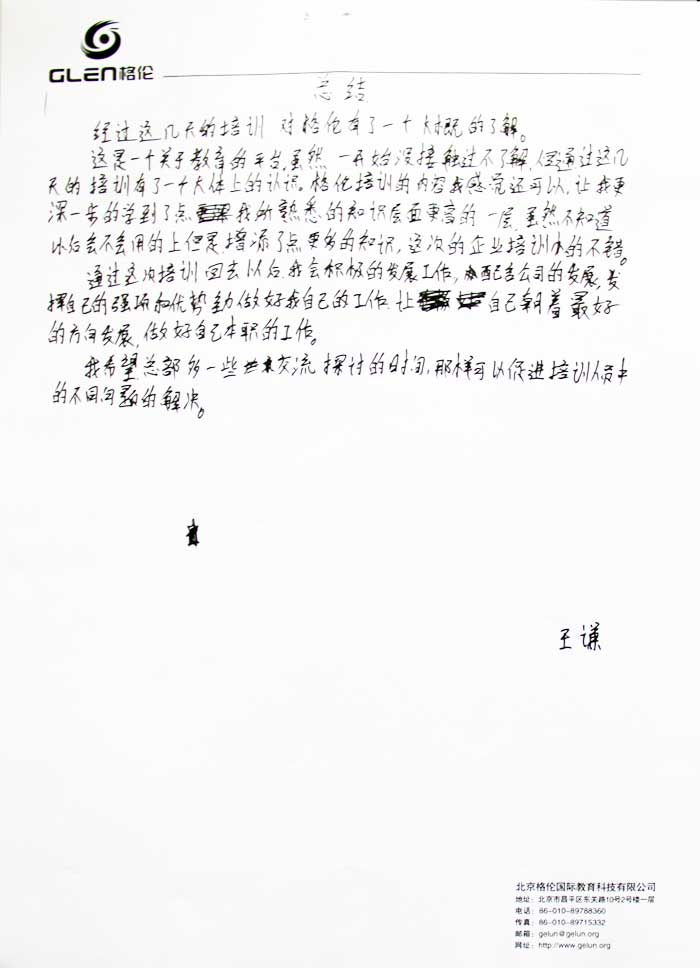 GLEN格伦
总结
经过这几天的培训 对格伦有了一个大概的了解。
这是一个关于教育的平台,虽然 一开始没接触过不了解,但通过这几
天的培训有了一个大体上的认识。格伦培训的内容我感觉还可以,让我更
深一步的学到了点 我所熟悉的知识层面更高的一层,虽然不知道
以后会不会用的上但是增添了点更多的知识,这次的企业培训办的不错。
通过这次培训 回去以后,我会积极的发展工作,配合公司的发展,发
挥自己的强项和优势 做好我自己的工作.让 自己朝着最好
的方向发展,做好自己本职的工作。
我希望总部多一些 交流 探讨的时间,那样可以促进培训 中
的不同问题的解决。
王谦
北京格伦国际教育科技有限公司
地址:北京市昌平区东关路10号2号楼一层
电话:86-010-89788360
传真:86-010-89715332
邮箱:gelun@gelun.org
网址:http://www.gelun.org